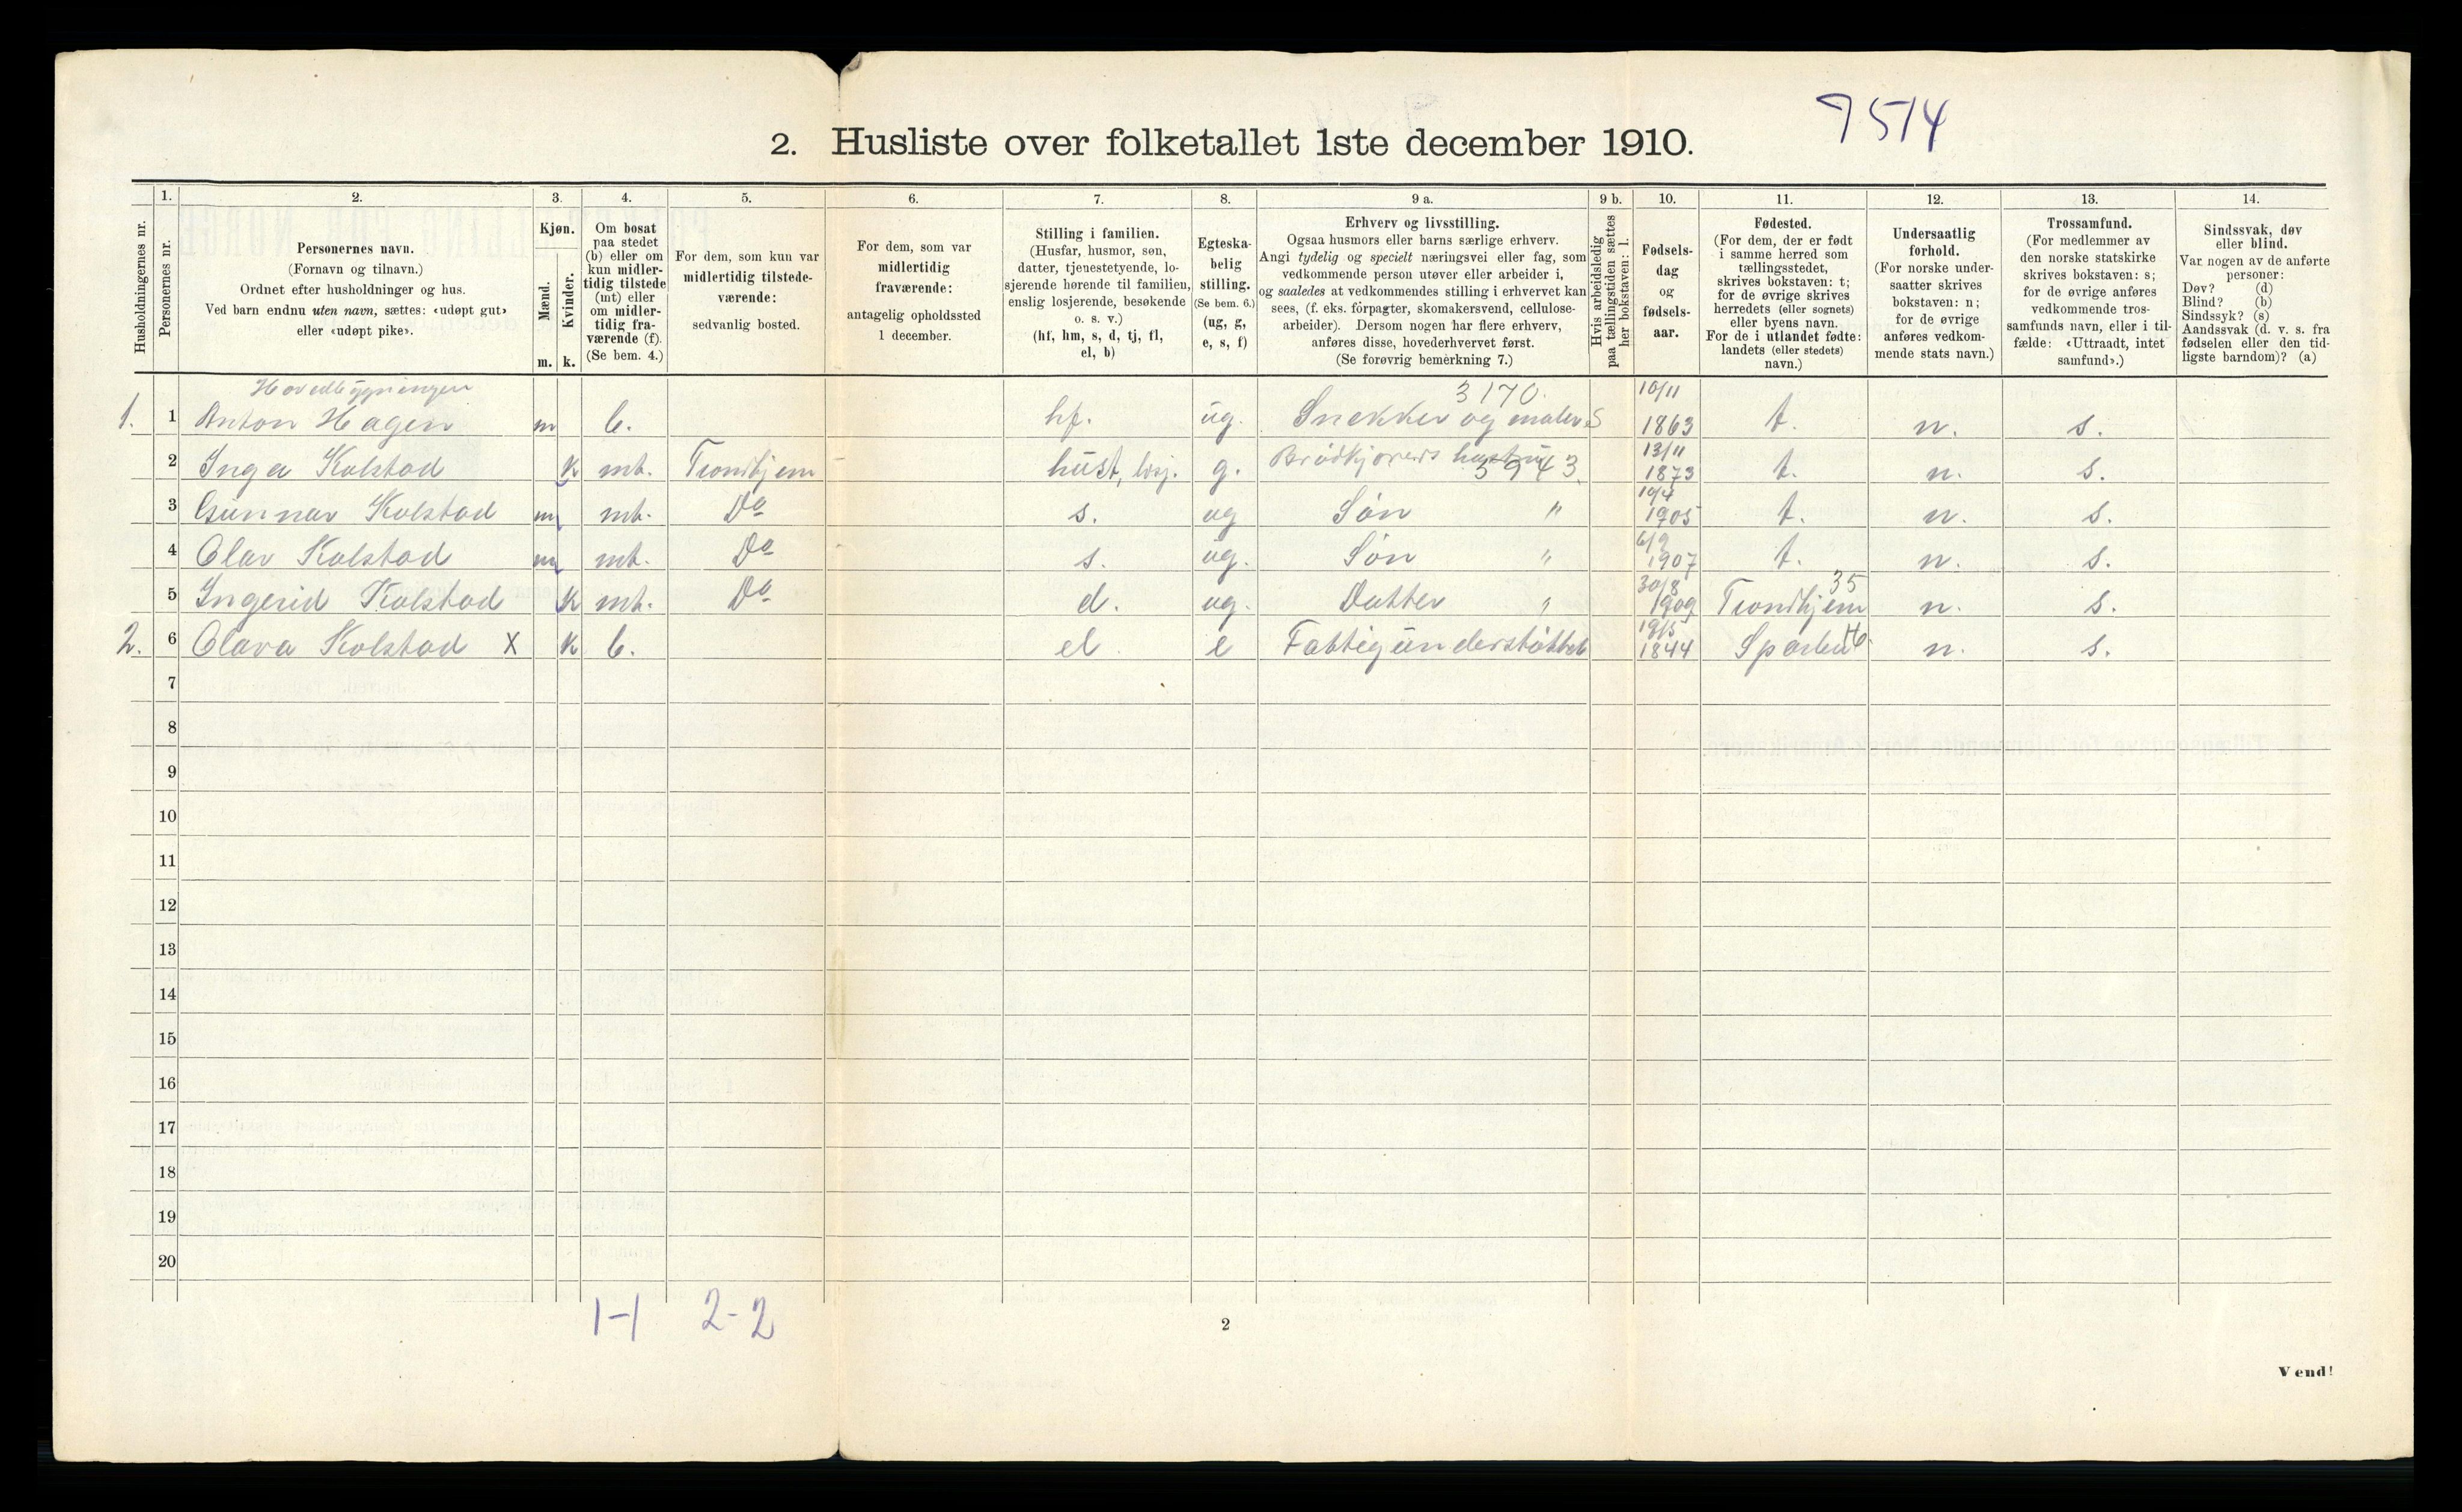 7514
2. Husliste over folketallet 1ste december 1910.
Husholdningernes nr.
1.
Personernes nr.
2.
Personernes navn.
(Fornavn og tilnavn.)
Ordnet efter husholdninger og hus.
Ved barn endnu uten navn, sættes: «udøpt gut»
eller «udøpt pike».
3.
Kjøn.
Mænd.
Kvinder.
m. k.
4.
Om bosat
paa stedet
(b) eller om
kun midler-
tidig tilstede
(mt) eller
om midler-
tidig fra-
værende (f).
(Se bem. 4.)
5.
For dem, som kun var
midlertidig tilstede-
værende:
sedvanlig bosted.
6.
For dem, som var
midlertidig
fraværende:
antagelig opholdssted
1 december.
7.
Stilling i familien.
(Husfar, husmor, søn,
datter, tjenestetyende, lo-
sjerende hørende til familien,
enslig losjerende, besøkende
o. s. v.)
(hf, hm, s, d, tj, fl,
el, b)
8.
Egteska-
belig
stilling.
(Se bem. 6.)
(ug, g,
e, s, f)
9 a.
Erhverv og livsstilling.
Ogsaa husmors eller barns særlige erhverv.
Angi tydelig og specielt næringsvei eller fag, som
vedkommende person utøver eller arbeider i,
og saaledes at vedkommendes stilling i erhvervet kan
sees, (f. eks. forpagter, skomakersvend, cellulose-
arbeider). Dersom nogen har flere erhverv,
anføres disse, hovederhvervet først.
(Se forøvrig bemerkning 7.)
9 b.
Hvis arbeidsledig
paa tællingstiden sættes
her bokstaven: l.
10.
Fødsels-
dag
og
fødsels-
aar.
11.
Fødested.
(For dem, der er født
i samme herred som
tællingsstedet,
skrives bokstaven: t;
for de øvrige skrives
herredets (eller sognets)
eller byens navn.
For de i utlandet fødte:
landets (eller stedets)
navn.)
12.
Undersaatlig
forhold.
(For norske under-
saatter skrives
bokstaven: n;
for de øvrige
anføres vedkom-
mende stats navn.)
13.
Trossamfund.
(For medlemmer av
den norske statskirke
skrives bokstaven: s;
for de øvrige anføres
vedkommende tros-
samfunds navn, eller i til-
fælde: «Uttraadt, intet
samfund».)
14.
Sindssvak, døv
eller blind.
Var nogen av de anførte
personer:
Døv? (d)
Blind? (b)
Sindssyk? (s)
Aandssvak (d. v. s. fra
fødselen eller den tid-
ligste barndom)? (a)
Hovedbygningen 3170. 10/11
1. 1 Anton Hagen m b. hf. ug. Snekker og maler S 1863 t. n. s.
2 Inga Kolstad k mt. Trondhjem hust, losj. g. Brødkjørers hustru 3943. 13/11 1873 t. n. s.
3 Gunnar Kolstad m mt. Do s. ug Søn " 19/4 1905 t. n. s.
4 Olav Kolstad m mt. Do s. ug. Søn " 6/9 1907 t. n. s.
5 Ingerid Kolstad k mt. Do d. ug. Datter " 30/8 1909 Trondhjem 35 n. s.
2. 6 Olava Kolstad X k b. el e Fattigunderstøttet 19/5 1844 Sparbu n. s.
7
8
9
10
11
12
13
14
15
16
17
18
19
20
1-1 2-2
2
Vend!